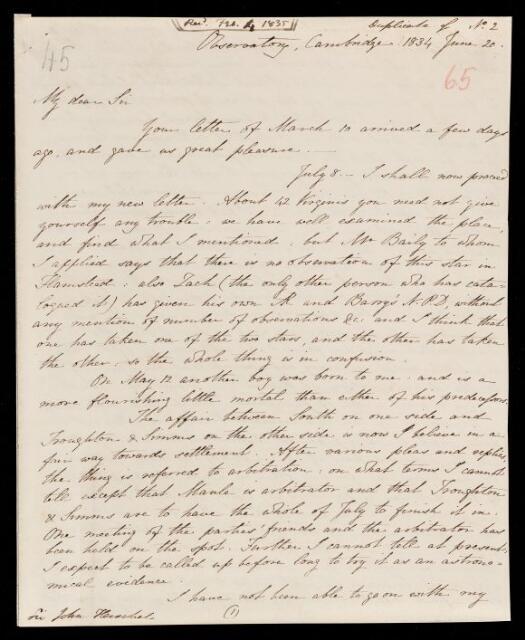 Rec.d Feb. 4 1835
Duplicate of No. 2
Observatory, Cambridge 1834 June 20.
45
65
My dear Sir
Your letter of March 10 arrived a few days
ago, and gave us great pleasure. —
July 8 – I shall now proceed
with my new letter. About 42 Virginis you need not give
yourself any trouble: we have well examined the place,
and find what I mentioned: but Mr Baily to whom
I applied says that there is no observation of this star in
Flamsteed: also Zach (the only other person who has cata-
logued it) has given his own AR and Barry's N.P.D. without
any mention of number of observations &c. and I think that
one has taken one of the two stars, and the other has taken
the other: so the whole thing is in confusion.
On May 12 another boy was born to me: and is a
more flourishing little mortal than either of his predecessors.
The affair between South on one side and
Troughton & Simms on the other side is now I believe in a
fair way towards settlement. After various pleas and replies,
the thing is referred to arbitration: on what terms I cannot
tell except that Maule is arbitrator and that Troughton
& Simms are to have the whole of July to finish it in.
One meeting of the parties' friends and the arbitrator has
been held on the spot. Further I cannot tell at present:
I expect to be called up before long to try it as an astrono-
mical evidence.
I have not been able to go on with my
Sir John Herschel.
(1)